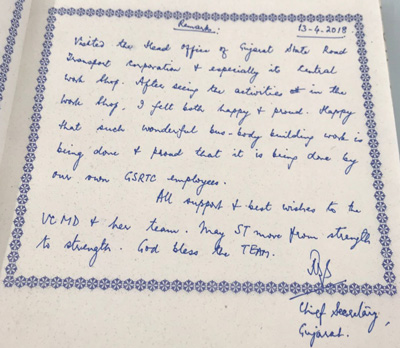 Remarks:
13-4.2018
Visited the Head Office of Gujarat State Road
Transport corporation & especially its Central
work shop. After seeing the activities in the
work shop, I felt both happy & proud. Happy
that such wonderful bus-body building work is
being done & proud that it is being done by
our own GSRTC employees.
All support & best wishes to the
VC MD & her team. May ST move from strength
to strength. God bless the TEAM.
Chief Secretary,
Gujarat.